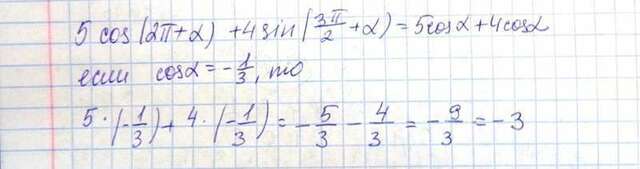 5 cos(2π+α) +4 sin(3π/2 +α) = 5cosα+4cosα
если cosα = -1/3, то
5·(-1/3)+ 4·(-1/3) = -5/3 - 4/3 = -9/3 = -3